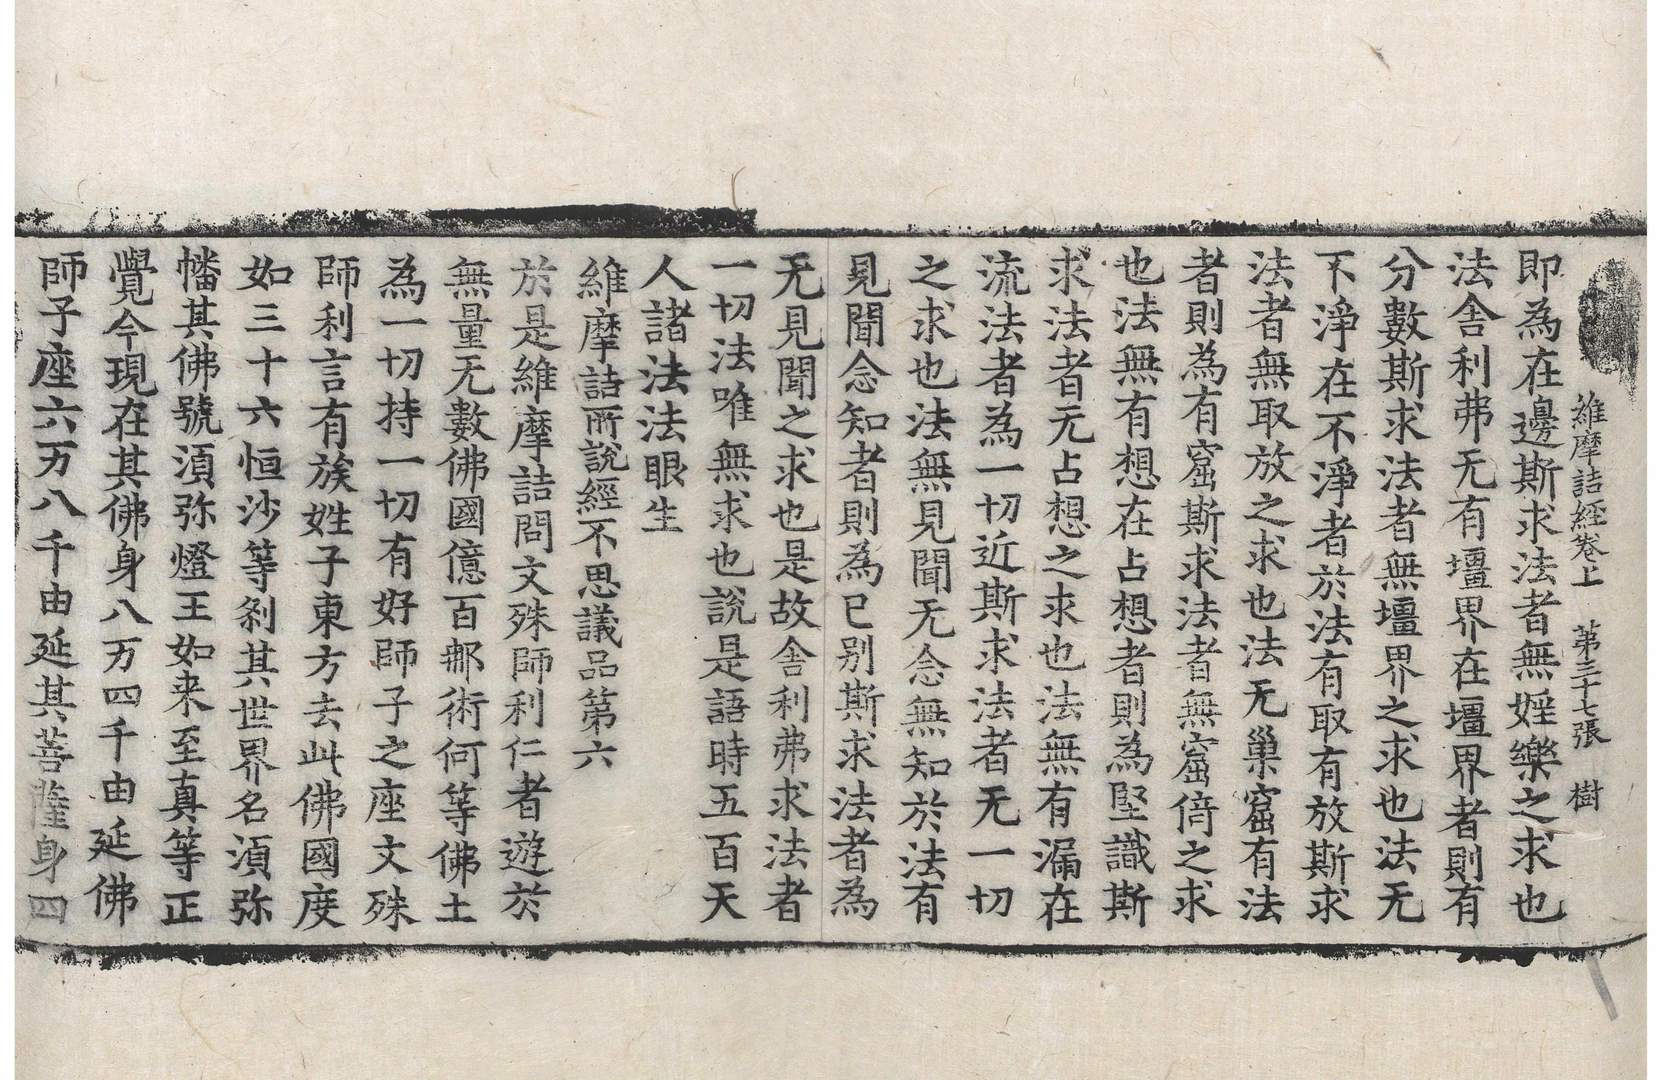 維摩詰經卷上　第三十七張　樹
即為在邊斯求法者無婬樂之求也
法舍利弗无有壃界在壃界者則有
分數斯求法者無壃界之求也法无
不淨在不淨者於法有取有放斯求
法者無取放之求也法无巢窟有法
者則為有窟斯求法者無窟倚之求
也法無有想在占想者則為堅識斯
求法者无占想之求也法無有漏在
流法者為一切近斯求法者无一切
之求也法無見聞无念無知於法有
見聞念知者則為已别斯求法者為
无見聞之求也是故舍利弗求法者
一切法唯無求也說是語時五百天
人諸法法眼生
維摩詰所說經不思議品第六
於是維摩詰問文殊師利仁者遊於
無量无數佛國億百那術何等佛土
為一切持一切有好師子之座文殊
師利言有族姓子東方去此佛國度
如三十六恒沙等剎其世界名湏弥
幡其佛號湏弥燈王如来至真等正
覺今現在其佛身八万四千由延佛
師子座六万八千由延其菩薩身四